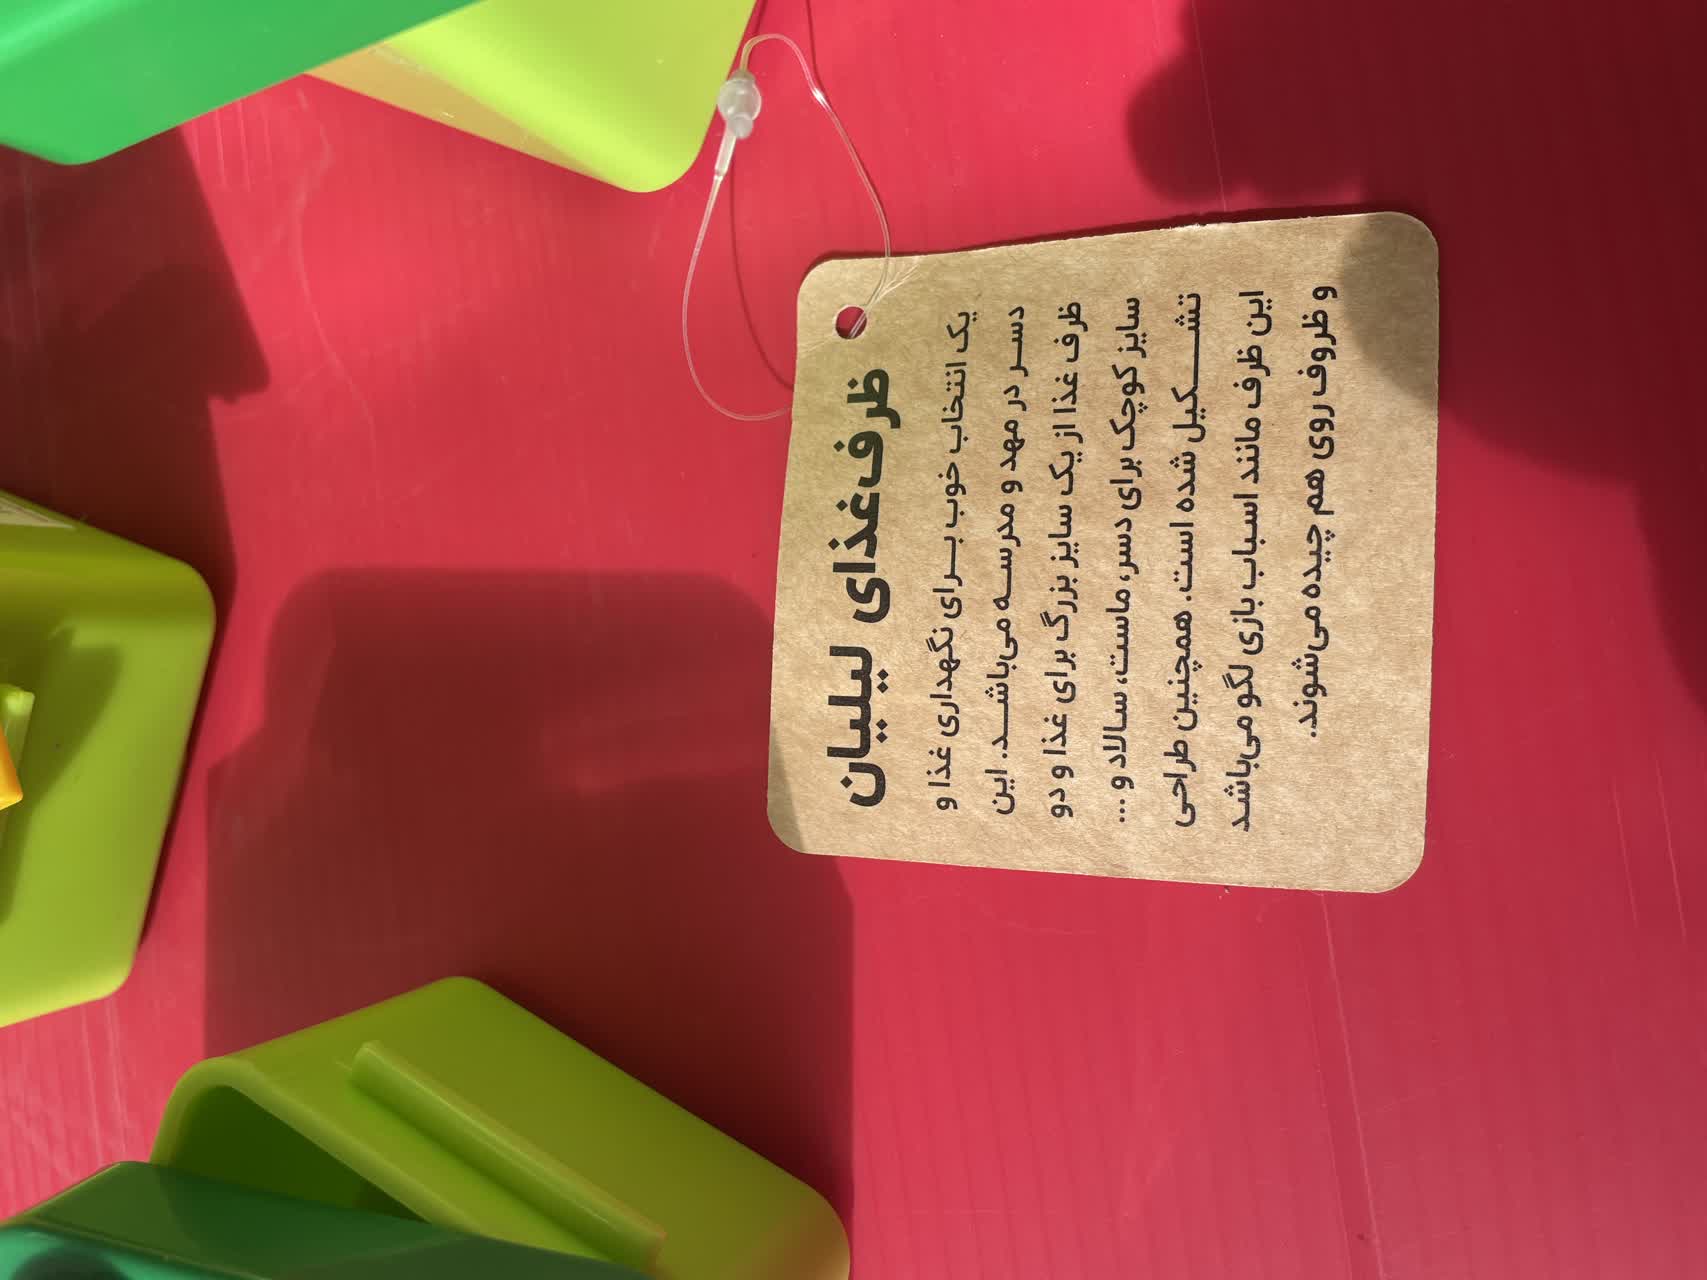 ظرف‌غذای لیلیان
یک انتخاب خوب بـــرای نگهداری غذا و
دسـر در مهد و مدرسـه می‌باشــد. این
ظرف غذا از یک سایز بزرگ برای غذا و دو
سایز کوچک برای دسر، ماست، سالاد و ...
تشــــکیل شده است. همچنین طراحی
این ظرف مانند اسباب بازی لگو می‌باشد
و ظروف روی هم چیده می‌شوند.